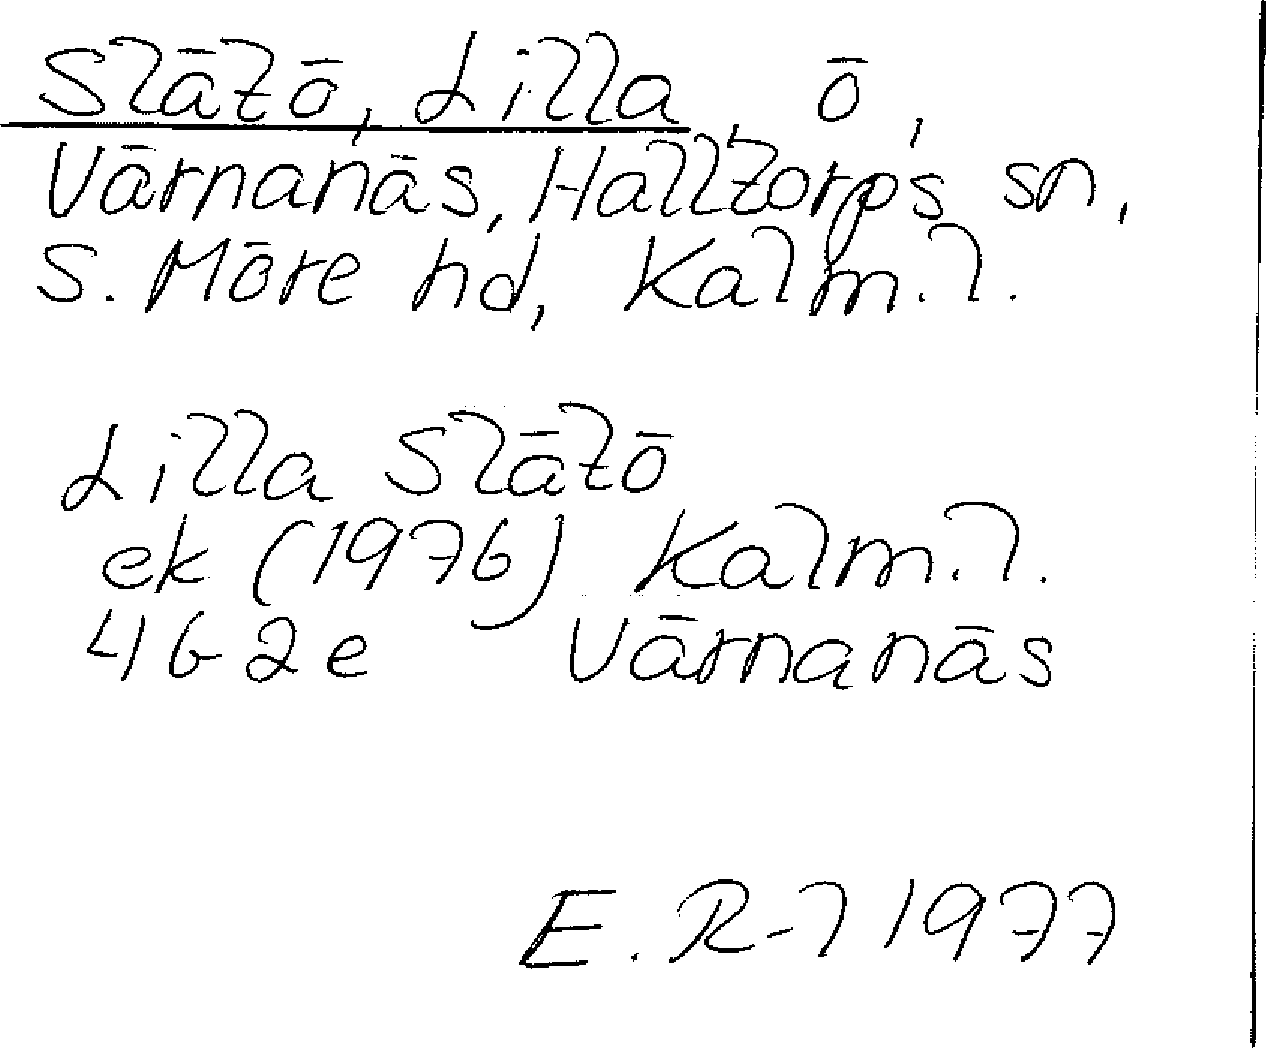 Slätö, Lilla, ö,
Värnanäs, Halltorps sn,
S. Möre hd, Kalm.l.
Lilla Slätö
ek (1976) Kalm.l.
4G2e Värnanäs
E. R-l 1977